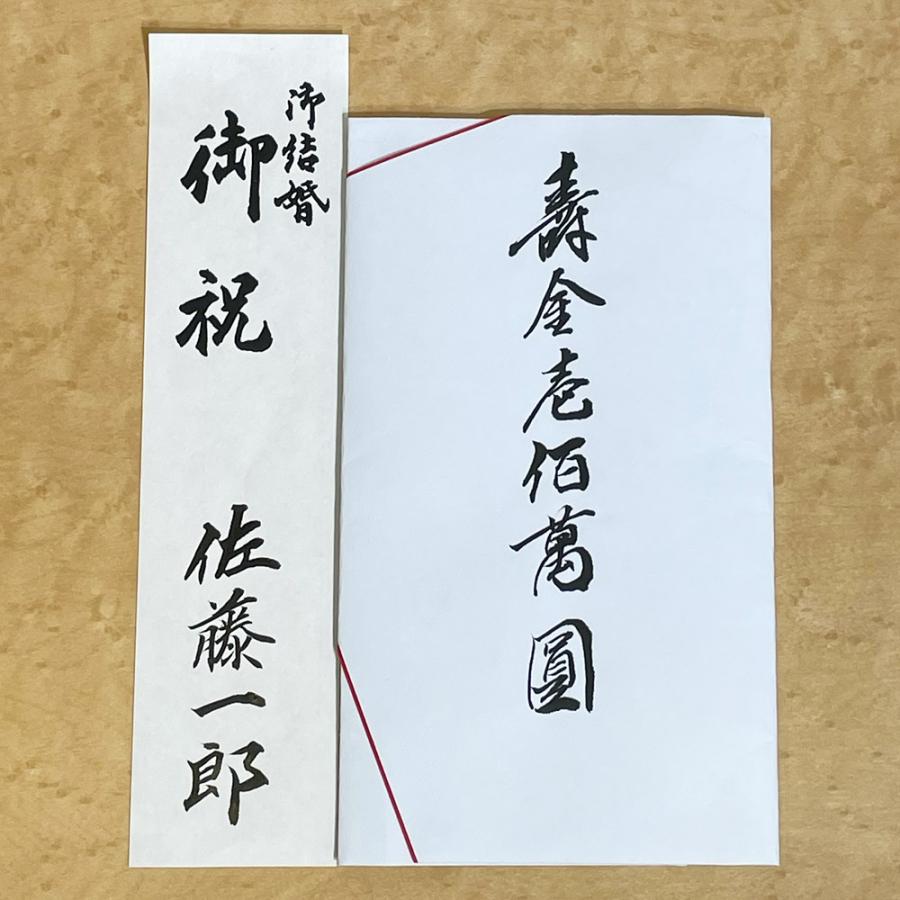 壽金壱佰萬圓
御結婚
御祝
佐藤一郎